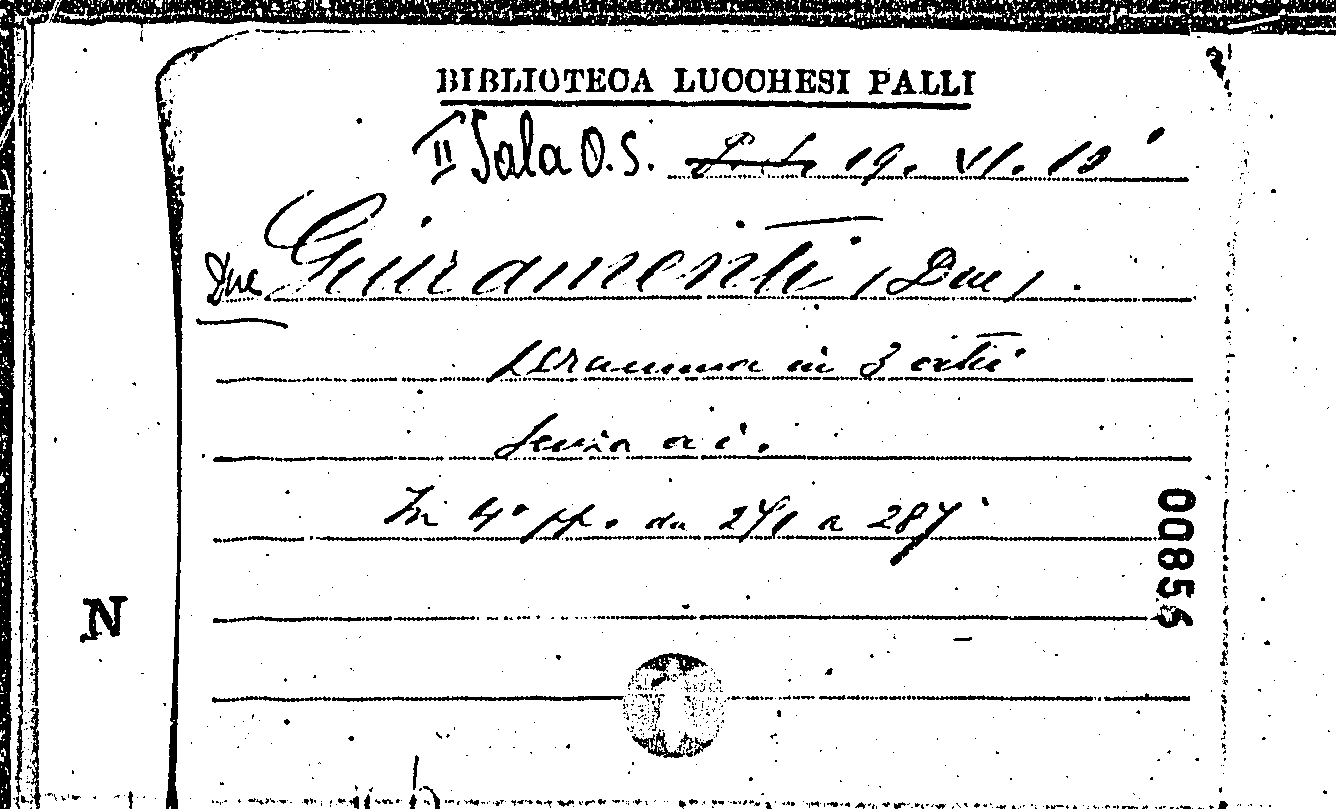 BIBLIOTECA LUCCHESI PALLI
II Sala O.S. 19. VI. 12
Due Giuramenti (Due).
dramma in 3 atti
senza a i.
In 4° pp. da 271 a 287
00856
N